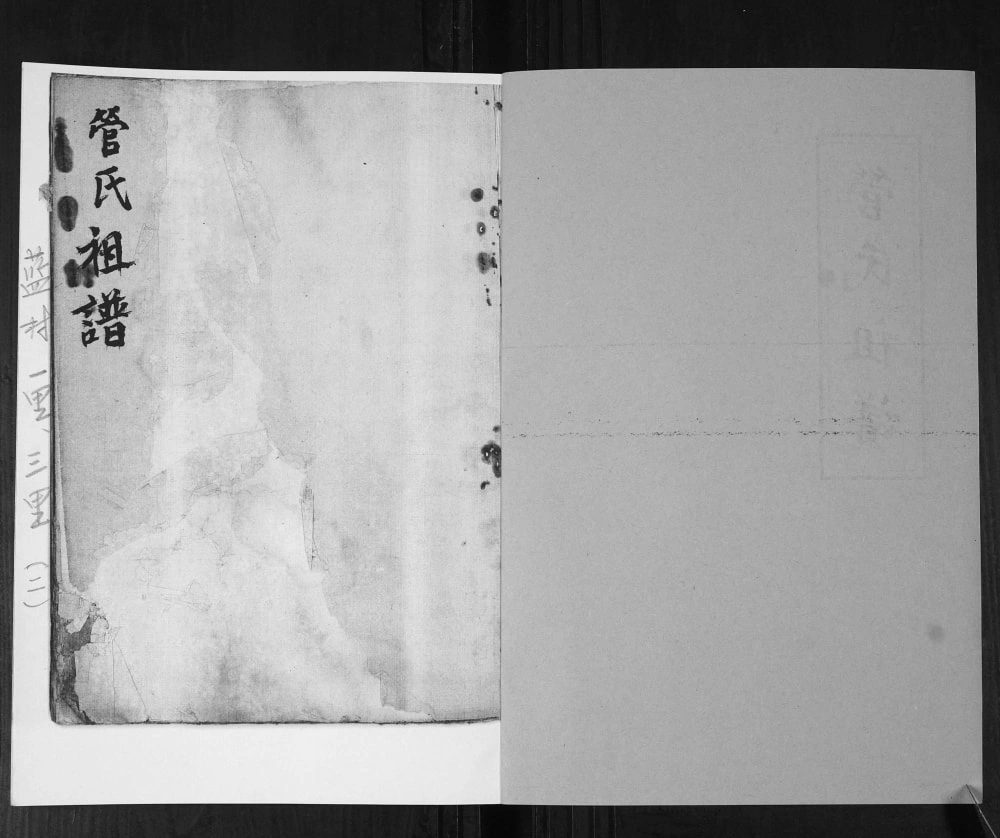 管氏祖譜
藍村一里、三里(二)
管氏祖譜